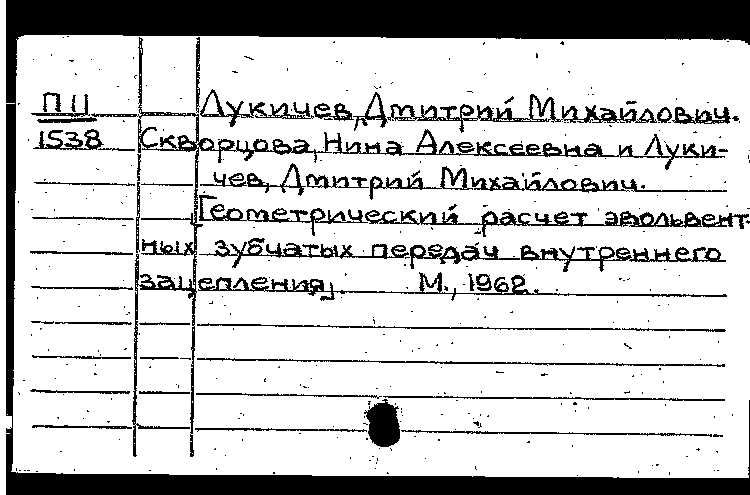 П II Лукичев, Дмитрий Михайлович.
1538 Скворцова, Нина Алексеевна и Луки-
чев, Дмитрий Михайлович.
[Геометрический расчет эвольвент-
ных зубчатых передач внутреннего
зацепления]. М., 1962.